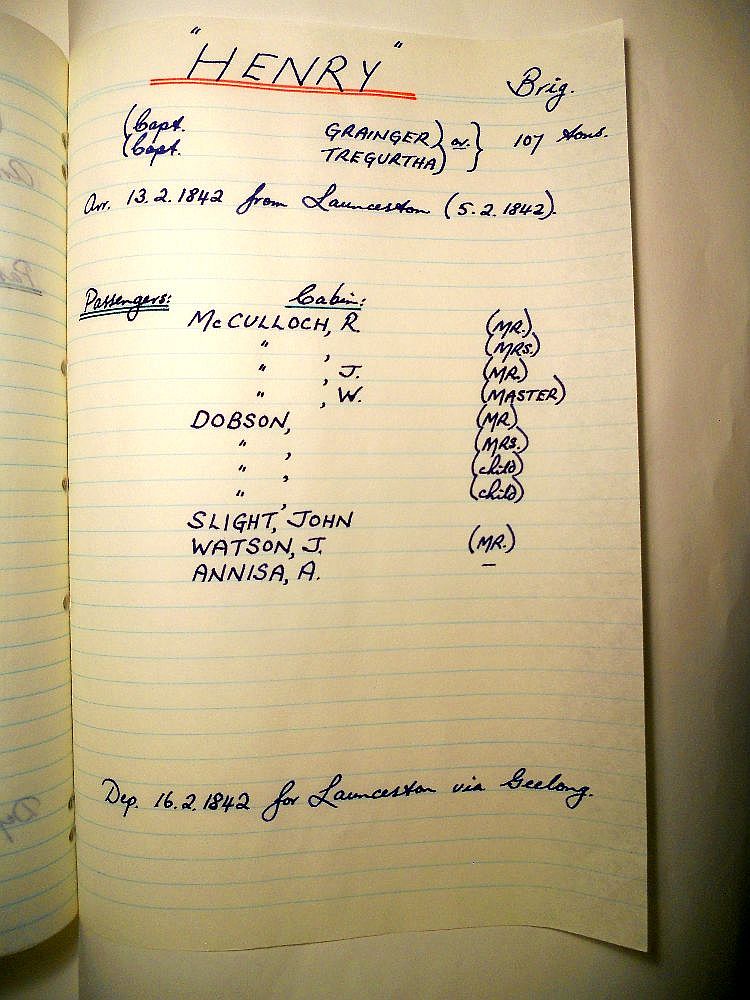 "HENRY" Brig.
(Capt. GRAINGER) or } 107 tons.
(Capt. TREGURTHA)
Arr. 13.2.1842 from Launceston (5.2.1842).
Passengers: Cabin:
McCULLOCH, R. (MR.)
" , (MRS.)
" , J. (MR.)
" , W. (MASTER)
DOBSON, (MR)
" , (MRS.)
" , (child)
" , (child)
SLIGHT, JOHN
WATSON, J. (MR.)
ANNISA, A. –
Dep. 16.2.1842 for Launceston via Geelong.